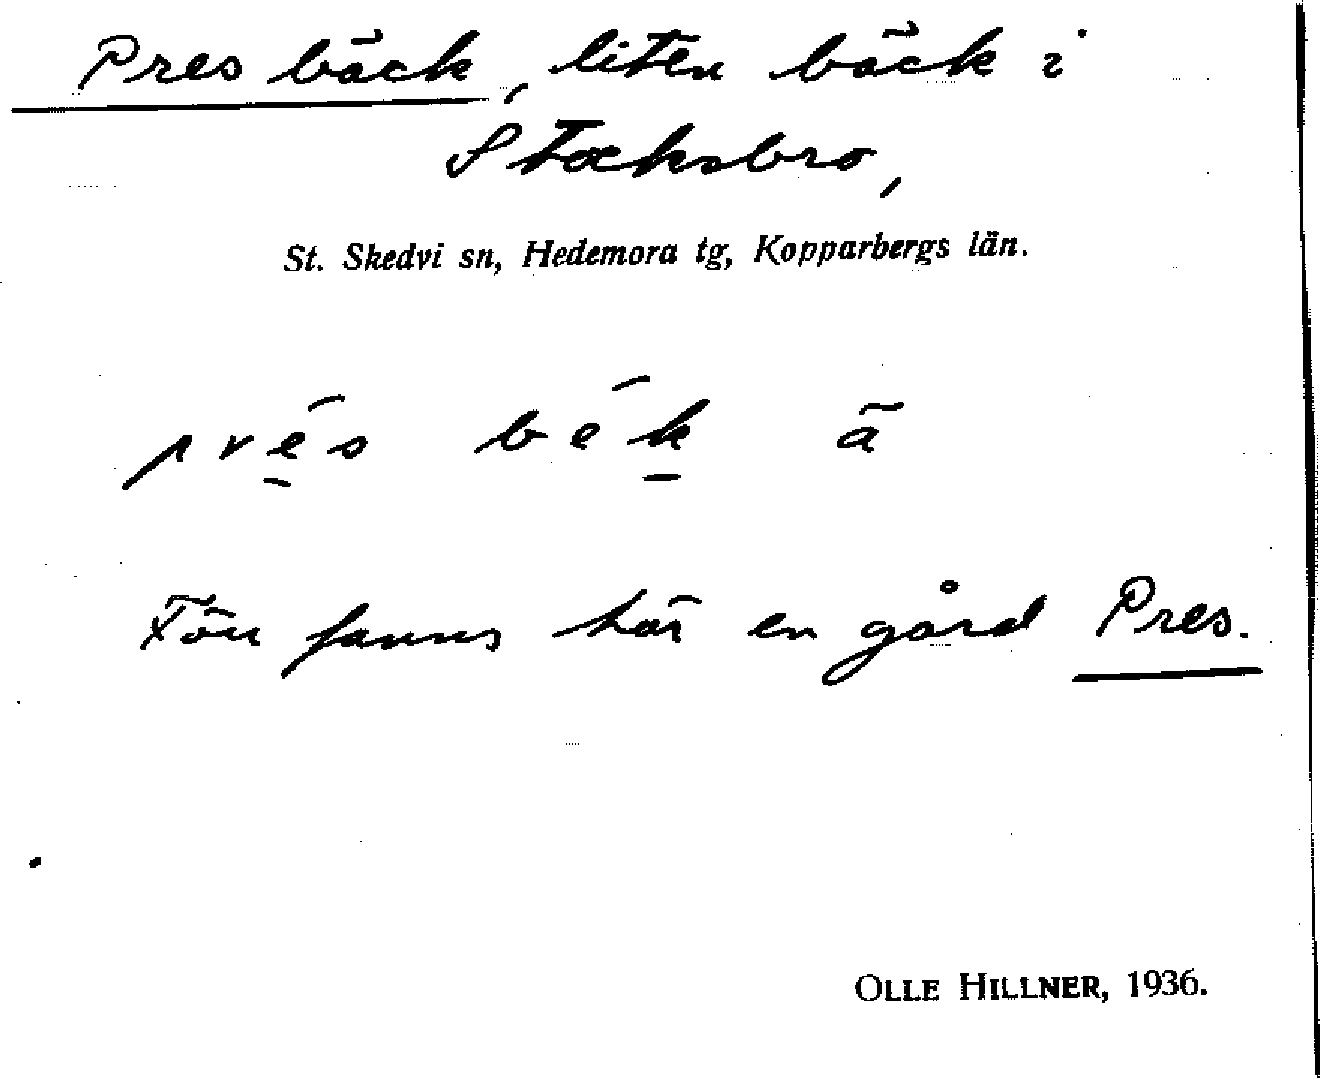 Pres bäck, liten bäck i
Stocksbro,
St. Skedvi sn, Hedemora tg, Kopparbergs län.
prés bék ā
Förr fanns här en gård Pres.
OLLE HILLNER, 1936.